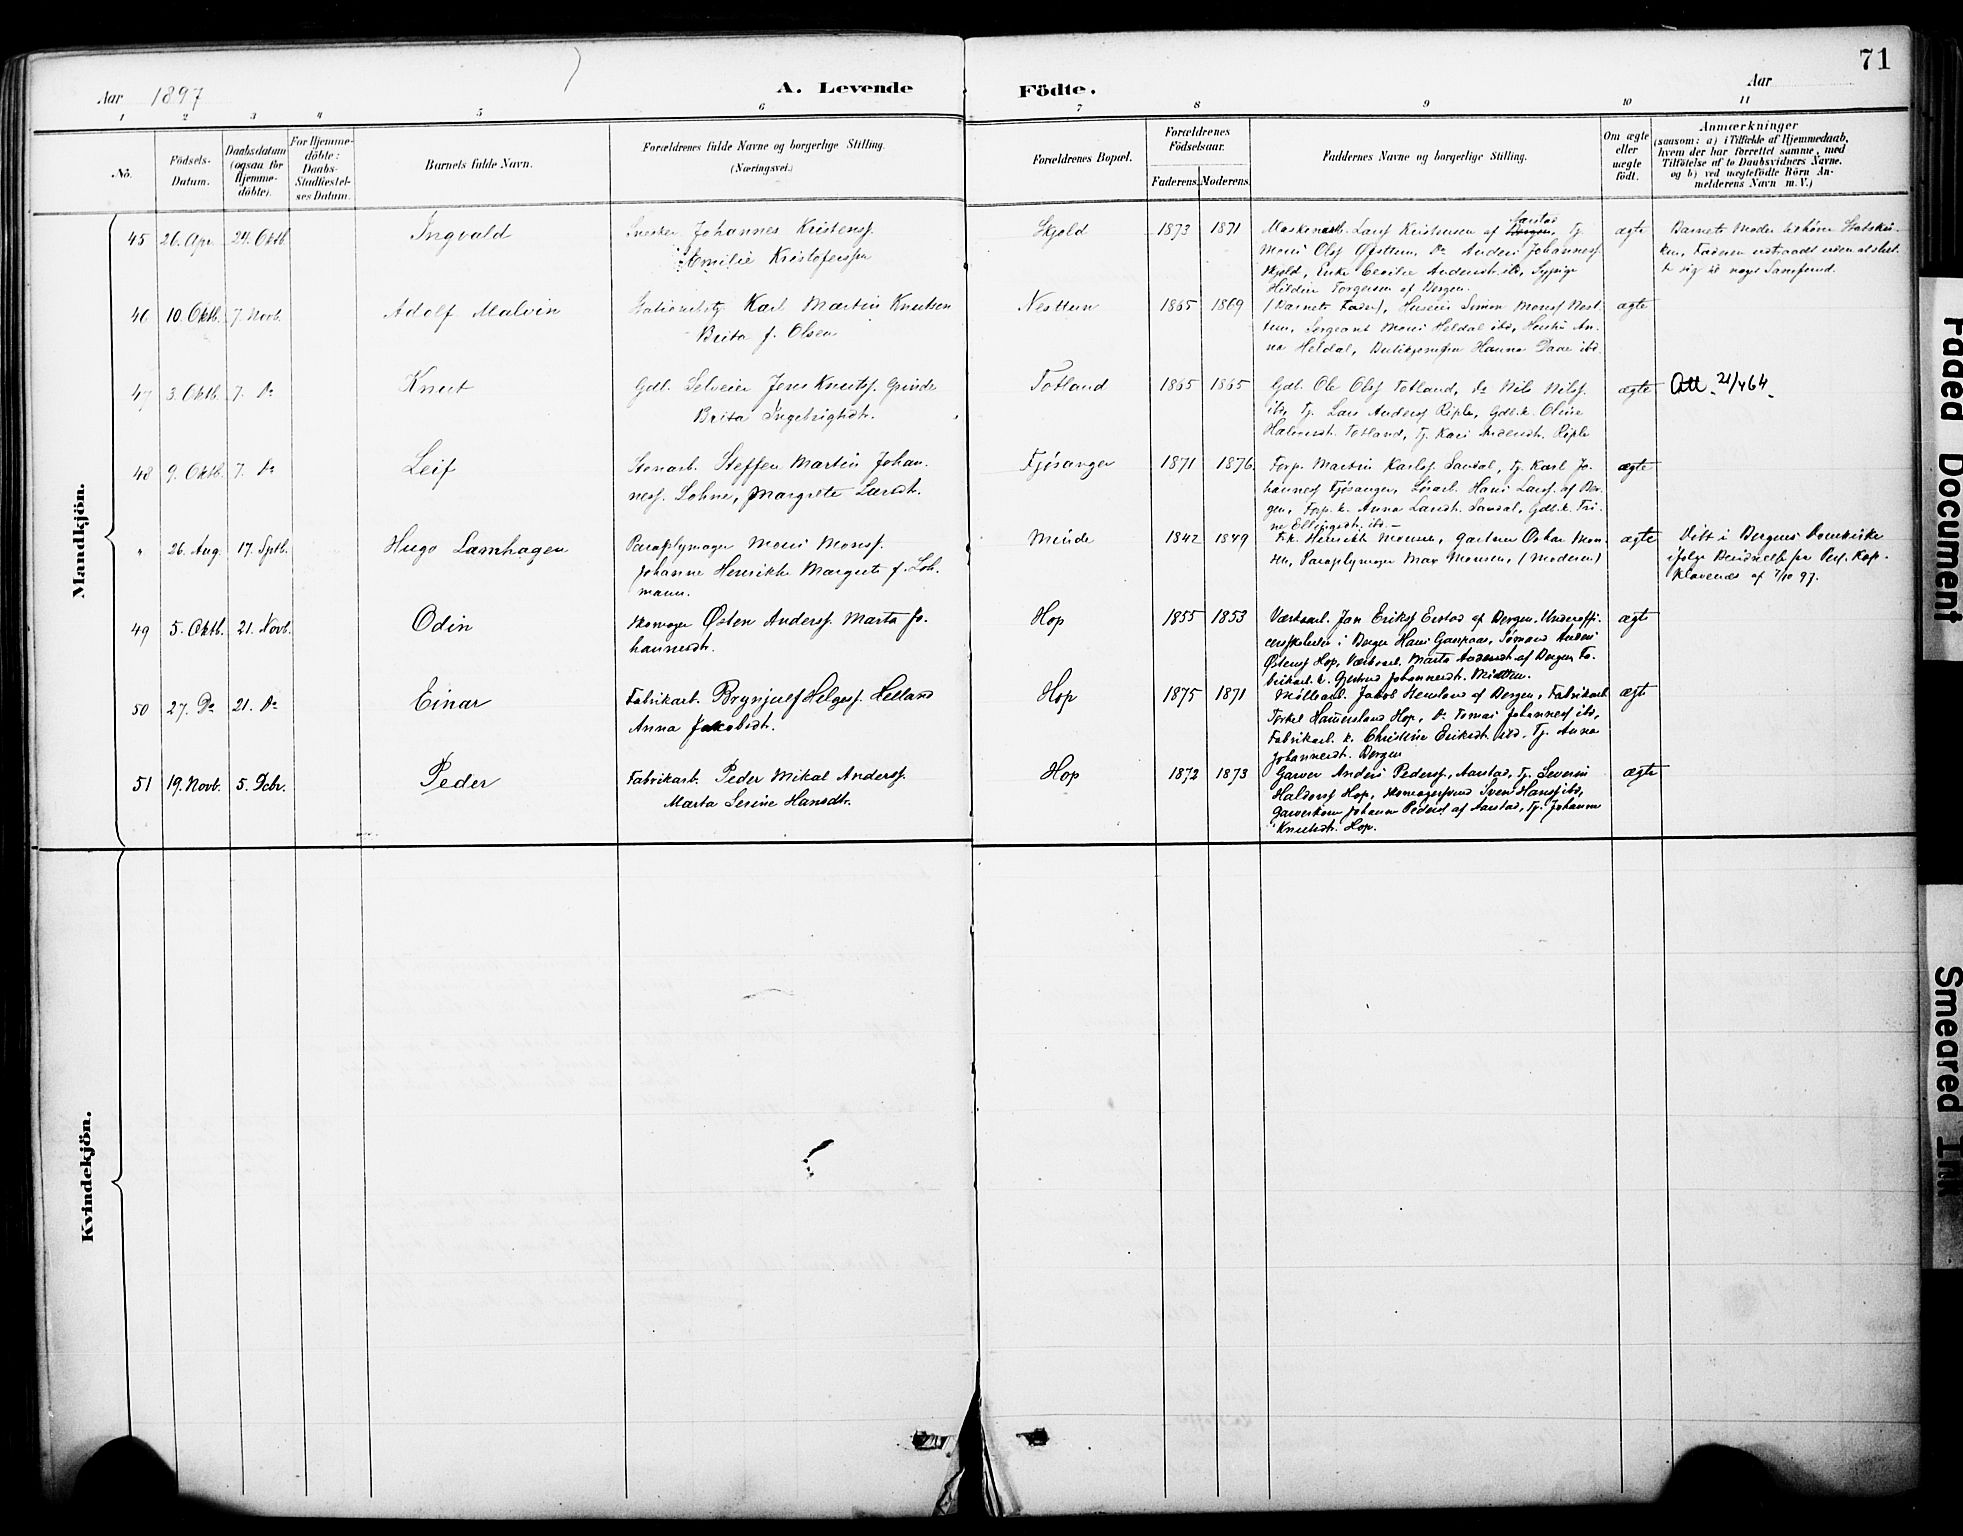 71
Aar 1897
A. Levende Födte.
Aar
1 2 3 4 5 6 7 8 9 10 11
No.
Födsels-
Datum.
Daabsdatum
(ogsaa for
Hjemme-
döbte).
For Hjemme-
döbte:
Daabs-
Stadfæstel-
ses Datum.
Barnets fulde Navn.
Forældrenes fulde Navne og borgerlige Stilling.
(Næringsvei.)
Forældrenes Bopæl.
Forældrenes
Födselsaar.
Faderens. Moderens.
Faddernes Navne og borgerlige Stilling.
Om ægte
eller
uægte
födt.
Anmærkninger
(saasom: a) i Tilfælde af Hjemmedaab,
hvem der har forrettet samme, med
Tilföielse af to Daabsvidners Navne,
og b) ved uegtefödte Börn An-
melderens Navn m. V.)
Mandkjön.
45 26. Apr. 24. Oktb. Ingvald
Snedker Johannes Kristens.
Emilie Kristofersen
Skjold 1873 1871
Lars Kristensen af Aarstad Bergen, Tj.
Mons Ols. Øvsttun, Do Anders Johannes.
Skjold, Enke Cecilie Andersdt. ibd, Sypige
Torgersen af Bergen.
ægte
Barnets Moder tilhører Statskir-
ken, Faderen udtraadt uden at slut-
te sig til noget Samfund.
46 10 Oktb. 7. Novb. Adolf Malvin
Karl Martin Knutsen
Brita f. Olsen
Nesttun 1865 1869
(Barnets Fader), Simon Mons. Nest-
tun, Sergeant Mons Heldal ibd, Hustru An-
na Heldal, Hanna Daae ibd.
ægte
47 3. Oktb. 7. Do Knut
Gdb. Selveier Jens Knuts. Grinde
Brita Ingebrigtsdt.
Totland 1865 1865
Gdb. Ole Ols. Totland, Do Nils Nils.
ibd, Tj. Lars Anders. Riple, Gdb.k. Oline
Halvorsdt. Totland, Tj. Kari Andersdt. Riple
ægte
Att. 21/4 64.
48 9. Oktb. 7. Do Leif
Stenarb. Steffen Martin Johan-
nes. Lohne, Margrete Larsdt.
Fjøsanger 1871 1876
Forp. Martin Karls. Sandal, Tj. Karl Jo-
hannes. Fjøsanger, Hans Lars. af Ber-
gen, Forp.k. Anna Larsdt. Sandal, Gdb.k. Tri-
ne Ellingsdt. ibd.
ægte
" 26. Aug. 17. Sptb. Hugo Lamhagen
Paraplymager Mons Mons.
Johanne Henrikke Margrete f. Loh-
mann.
Minde 1842 1849
Frk. Henrikke Monsen, Gartner Oskar Mon-
sen, Paraplymager Max Monsen, (Moderen)
ægte
Døbt i Bergens Domkirke
ifølge Anmeldelse fra Res. Kap.
Klaveness af 7/10 97.
49 5. Oktb. 21. Novb. Odin
Skomager Østen Anders. Marta Jo-
hannesdt.
Hop 1855 1853
Værksarb. Jan Eriks. Erstad af Bergen, Underoffi-
cerskoleelev i Bergen Hans Gaupaas, Sømand Anders
Østens. Hop, Værksarb. Marta Andersdt. af Bergen, Fa-
brikarb. k. Gjertrud Johannesdt. Midttun.
ægte
50 27. Do 21. Do Einar
Fabrikarb. Brynjulf Helges. Helland
Anna Jakobsdt.
Hop 1875 1871
Møllearb. Jakob af Bergen, Fabrikarb.
Torkel Hammersland Hop, Do Tomas Johannes. ibd,
Fabrikarb. k. Christine Eriksdt. ibd, Tj. Anna
Johannesdt. Bergen
ægte
51 19. Novb. 5. Dcbr. Peder
Fabrikarb. Peder Mikal Anders.
Marta Serine Hansdt.
Hop 1872 1873
Garver Anders Peders. Aarstad, Tj. Severin
Haldors. Hop, Skomagersvend Sven Hans. ibd,
Garverkone Johanne Peders. af Aarstad, Tj. Johanne
Knutsdt. Hop.
ægte
Kvindekjön.
Faded Document
Smeared Ink